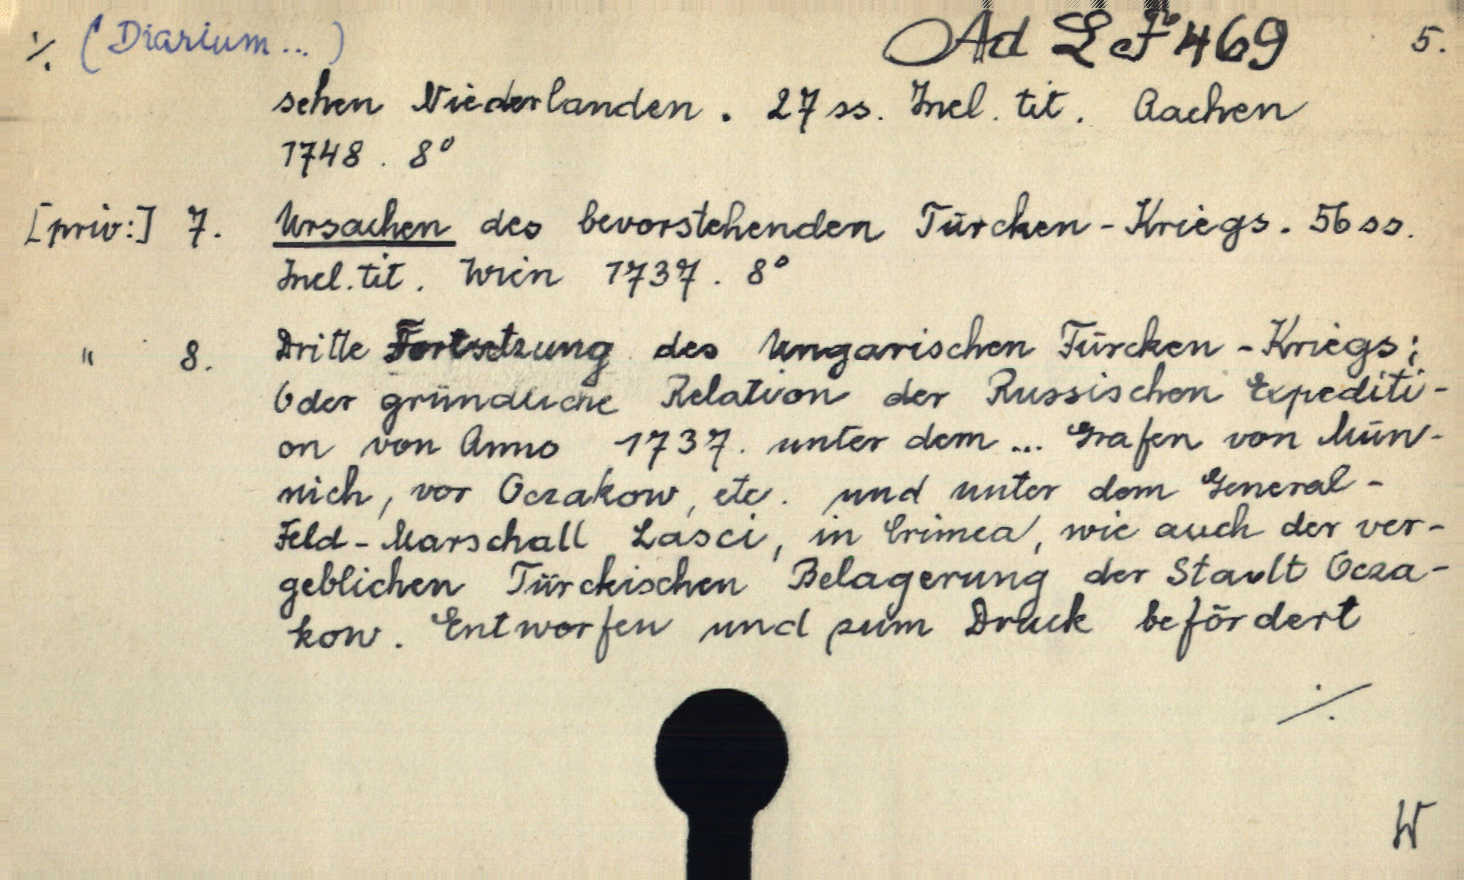 ·/. (Diarium...) Ad LF 469 5.
schen Niederlanden. 27 ss. Incl. tit. Aachen
1748. 8°
[priv:] 7. Ursachen des bevorstehenden Türcken-Kriegs. 56 ss.
Incl. tit. Wien 1737. 8°
" 8. Dritte Fortsetzung des Ungarischen Türcken-Kriegs;
Oder gründliche Relation der Russischen Expediti-
on von Anno 1737. unter dem ... Grafen von Mün-
nich, vor Oczakow, etc. und unter dem General-
Feld-Marschall Lasci, in Crimea, wie auch der ver-
geblichen Türckischen Belagerung der Stadt Ocza-
kow. Entworfen und zum Druck befördert
·/.
W